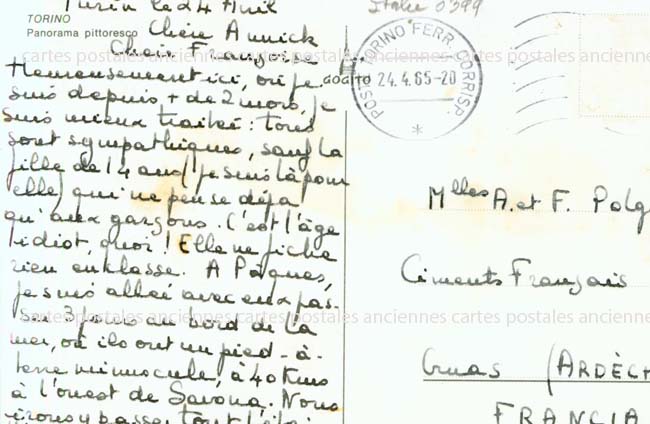 Turin le 24 Avril
Italie 0399
TORINO
Panorama pittoresco
Chère Annick
Chère Françoise
Heureusement ici, où je
suis depuis + de 2 mois, je
suis mieux traitée : tous
sont sympathiques, sauf la
fille de 14 ans (je suis là pour
elle) qui ne pense déjà
qu'aux garçons. C'est l'âge
idiot, quoi ! Elle ne fiche
rien en classe. A Pâques,
je suis allée avec eux pas-
ser 3 jours au bord de la
mer, où ils ont un pied-à-
terre minuscule, à 40 Kms
à l'ouest de Savona. Nous
irons y passer tout l'été
TORINO FERR. CORRISP.
POSTE
24.4.65-20
Mlles A. et F. Polg
Ciments Français
Cruas (ARDÈCH
FRANCIA
cartes postales anciennes cartes postales anciennes cartes postales anciennes
cartes postales anciennes cartes postales anciennes cartes postales anciennes